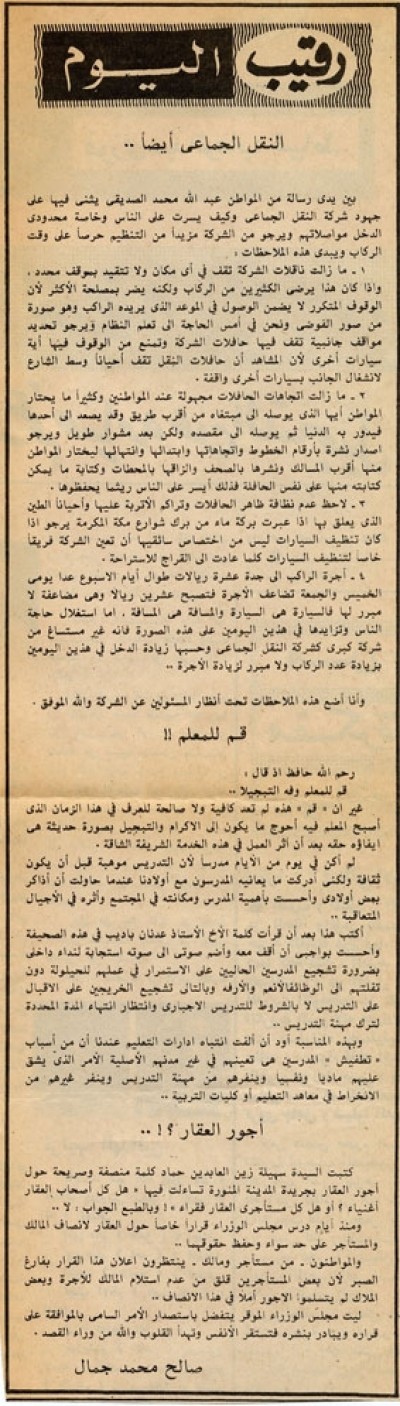 رقيب اليوم
النقل الجماعى أيضاً ..
بين يدى رسالة من المواطن عبد الله محمد الصديقى يثنى فيها على
جهود شركة النقل الجماعى وكيف يسرت على الناس وخاصة محدودى
الدخل مواصلاتهم ويرجو من الشركة مزيداً من التنظيم حرصاً على وقت
الركاب ويبدى هذه الملاحظات :
١ ـ ما زالت ناقلات الشركة تقف فى أى مكان ولا تتقيد بموقف محدد ،
واذا كان هذا يرضى الكثيرين من الركاب ولكنه يضر بمصلحة الأكثر لأن
الوقوف المتكرر لا يضمن الوصول فى الموعد الذى يريده الراكب وهو صورة
من صور الفوضى ونحن فى أمس الحاجة الى تعلم النظام ويرجو تحديد
مواقف جانبية تقف فيها حافلات الشركة وتمنع من الوقوف فيها أية
سيارات أخرى لأن المشاهد أن حافلات النقل تقف أحياناً وسط الشارع
لانشغال الجانب بسيارات أخرى واقفة .
٢ ـ ما زالت اتجاهات الحافلات مجهولة عند المواطنين وكثيراً ما يحتار
المواطن أيها الذى يوصله الى مبتغاه من أقرب طريق وقد يصعد الى أحدها
فيدور به الدنيا ثم يوصله الى مقصده ولكن بعد مشوار طويل ويرجو
اصدار نشرة بأرقام الخطوط واتجاهاتها وابتدائها وانتهائها ليختار المواطن
منها أقرب المسالك ونشرها بالصحف والزاقها بالمحطات وكتابة ما يمكن
كتابته منها على نفس الحافلة فذلك أيسر على الناس ريثما يحفظوها .
٣ ـ لاحظ عدم نظافة ظاهر الحافلات وتراكم الأتربة عليها وأحياناً الطين
الذى يعلق بها اذا عبرت بركة ماء من برك شوارع مكة المكرمة يرجو اذا
كان تنظيف السيارات ليس من اختصاص سائقيها أن تعين الشركة فريقاً
خاصاً لتنظيف السيارات كلما عادت الى القراج للاستراحة .
٤ ـ أجرة الراكب الى جدة عشرة ريالات طوال أيام الاسبوع عدا يومى
الخميس والجمعة تضاعف الأجرة فتصبح عشرين ريالا وهى مضاعفة لا
مبرر لها فالسيارة هى السيارة والمسافة هى المسافة ، اما استغلال حاجة
الناس وتزايدها فى هذين اليومين على هذه الصورة فانه غير مستساغ من
شركة كبرى كشركة النقل الجماعى وحسبها زيادة الدخل في هذين اليومين
بزيادة عدد الركاب ولا مبرر لزيادة الأجرة ..
وأنا أضع هذه الملاحظات تحت أنظار المسئولين عن الشركة والله الموفق .
قم للمعلم !!
رحم الله حافظ اذ قال :
قم للمعلم وفه التبجيلا ..
غير ان « قم » هذه لم تعد كافية ولا صالحة للعرف في هذا الزمان الذى
أصبح المعلم فيه أحوج ما يكون إلى الاكرام والتبجيل بصورة حديثة هى
ايفاؤه حقه بعد أن أثر العمل فى هذه الخدمة الشريفة الشاقة .
لم أكن في يوم من الأيام مدرساً لأن التدريس موهبة قبل أن يكون
ثقافة ولكنى أدركت ما يعانيه المدرسون مع أولادنا عندما حاولت أن أذاكر
بعض أولادى وأحسست بأهمية المدرس ومكانته في المجتمع وأثره في الأجيال
المتعاقبة ..
أكتب هذا بعد أن قرأت كلمة الأخ الأستاذ عدنان باديب في هذه الصحيفة
وأحسست بواجبى أن أقف معه وأضم صوتى الى صوته استجابة لنداء داخلى
بضرورة تشجيع المدرسين الحاليين على الاستمرار في عملهم للحيلولة دون
تفلتهم الى الوظائفالأنعم والأرفه وبالتالى تشجيع الخريجين على الاقبال
على التدريس لا بالشروط للتدريس الاجبارى وانتظار انتهاء المدة المحددة
لترك مهنة التدريس ..
وبهذه المناسبة أود أن ألفت انتباه ادارات التعليم عندنا أن من أسباب
« تطفيش » المدرسين هى تعيينهم في غير مدنهم الأصلية الأمر الذى يشق
عليهم ماديا ونفسيا وينفرهم من مهنة التدريس وينفر غيرهم من
الانخراط في معاهد التعليم أو كليات التربية ..
أجور العقار ؟! ..
كتبت السيدة سهيلة زين العابدين حماد كلمة منصفة وصريحة حول
أجور العقار بجريدة المدينة المنورة تساءلت فيها « هل كل أصحاب العقار
أغنياء ؟ أو هل كل مستأجرى العقار فقراء » ! وبالطبع الجواب : لا ..
ومنذ أيام درس مجلس الوزراء قراراً خاصاً حول العقار لانصاف المالك
والمستأجر على حد سواء وحفظ حقوقهما ..
والمواطنون ـ من مستأجر ومالك ـ ينتظرون اعلان هذا القرار بفارغ
الصبر لأن بعض المستأجرين قلق من عدم استلام المالك للأجرة وبعض
الملاك لم يتسلموا الاجور أملا في هذا الانصاف ..
ليت مجلس الوزراء الموقر يتفضل باستصدار الأمر السامى بالموافقة على
قراره ويبادر بنشره فتستقر الأنفس وتهدأ القلوب والله من وراء القصد .
صالح محمد جمال